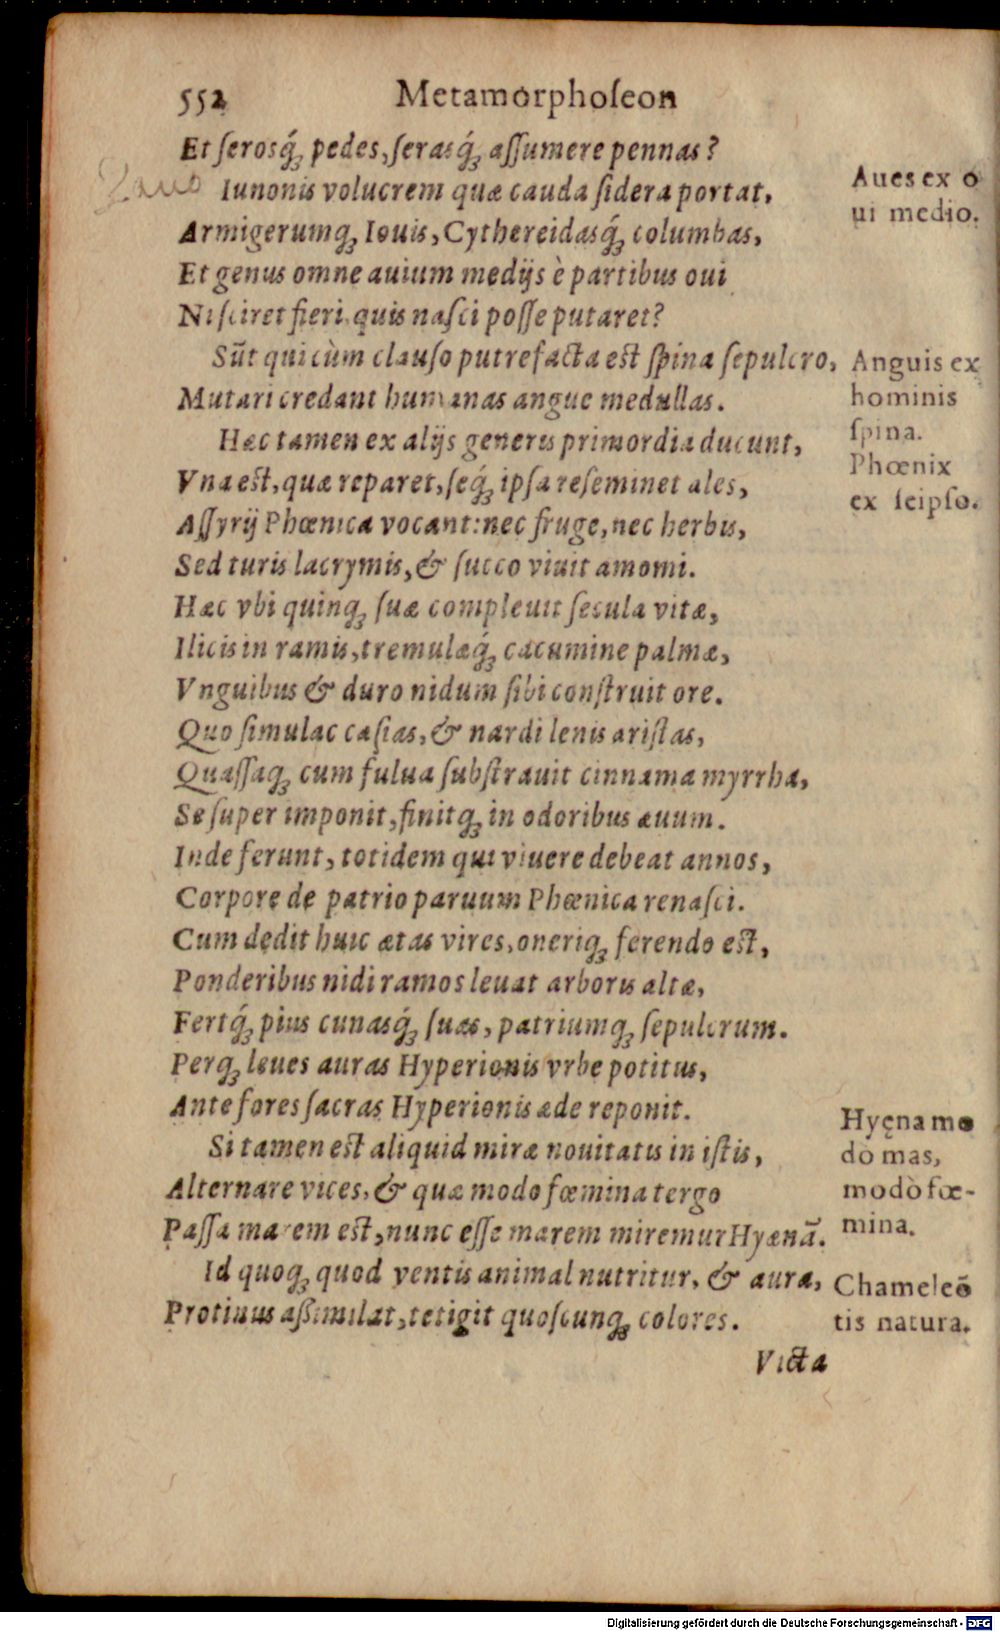 552 Metamorphoſeon
Et ſerosq́ꝫ pedes, ſerasq́ꝫ aſſumere pennas?
Iunonis volucrem quæ cauda ſidera portat,
Armigerumqꝫ Iouis, Cythereidasq́ꝫ columbas,
Et genus omne auium medijs è partibus oui
Ni ſciret fieri, quis naſci poſſe putaret?
Aues ex o
ui medio.
Sūt qui cùm clauſo putrefacta est ſpina ſepulcro,
Mutari credant humanas angue medullas.
Hæc tamen ex alijs generis primordia ducunt,
Vna est, quæ reparet, ſeq́ꝫ ipſa reſeminet ales,
Aſſyrij Phœnica vocant: nec fruge, nec herbis,
Anguis ex
hominis
ſpina.
Phœnix
ex ſeipſo.
Sed turis lacrymis, & ſucco viuit amomi.
Hæc vbi quinqꝫ ſuæ compleuit ſecula vitæ,
Ilicis in ramis, tremulæq́ꝫ cacumine palmæ,
Vnguibus & duro nidum ſibi conſtruit ore.
Quo ſimulac caſias, & nardi lenis ariſtas,
Quaſſaqꝫ cum fulua ſubſtrauit cinnama myrrha,
Se ſuper imponit, finitqꝫ in odoribus æuum.
Inde ferunt, totidem qui viuere debeat annos,
Corpore de patrio paruum Phœnica renaſci.
Cum dedit huic ætas vires, oneriqꝫ ferendo est,
Ponderibus nidi ramos leuat arboris altæ,
Fertq́ꝫ pius cunasq́ꝫ ſuas, patriumqꝫ ſepulcrum.
Perqꝫ leues auras Hyperionis vrbe potitus,
Ante fores ſacras Hyperionis æde reponit.
Si tamen est aliquid miræ nouitatis in iſtis,
Alternare vices, & quæ modo fœmina tergo
Paſſa marem est, nunc eſſe marem miremur Hyænā.
Hyęna mo
do mas,
modò fœ-
mina.
Id quoqꝫ quod ventis animal nutritur, & aura,
Protinus aßimilat, tetigit quoſcunqꝫ colores.
Chameleō
tis natura.
Victa
Digitalisierung gefördert durch die Deutsche Forschungsgemeinschaft - DFG